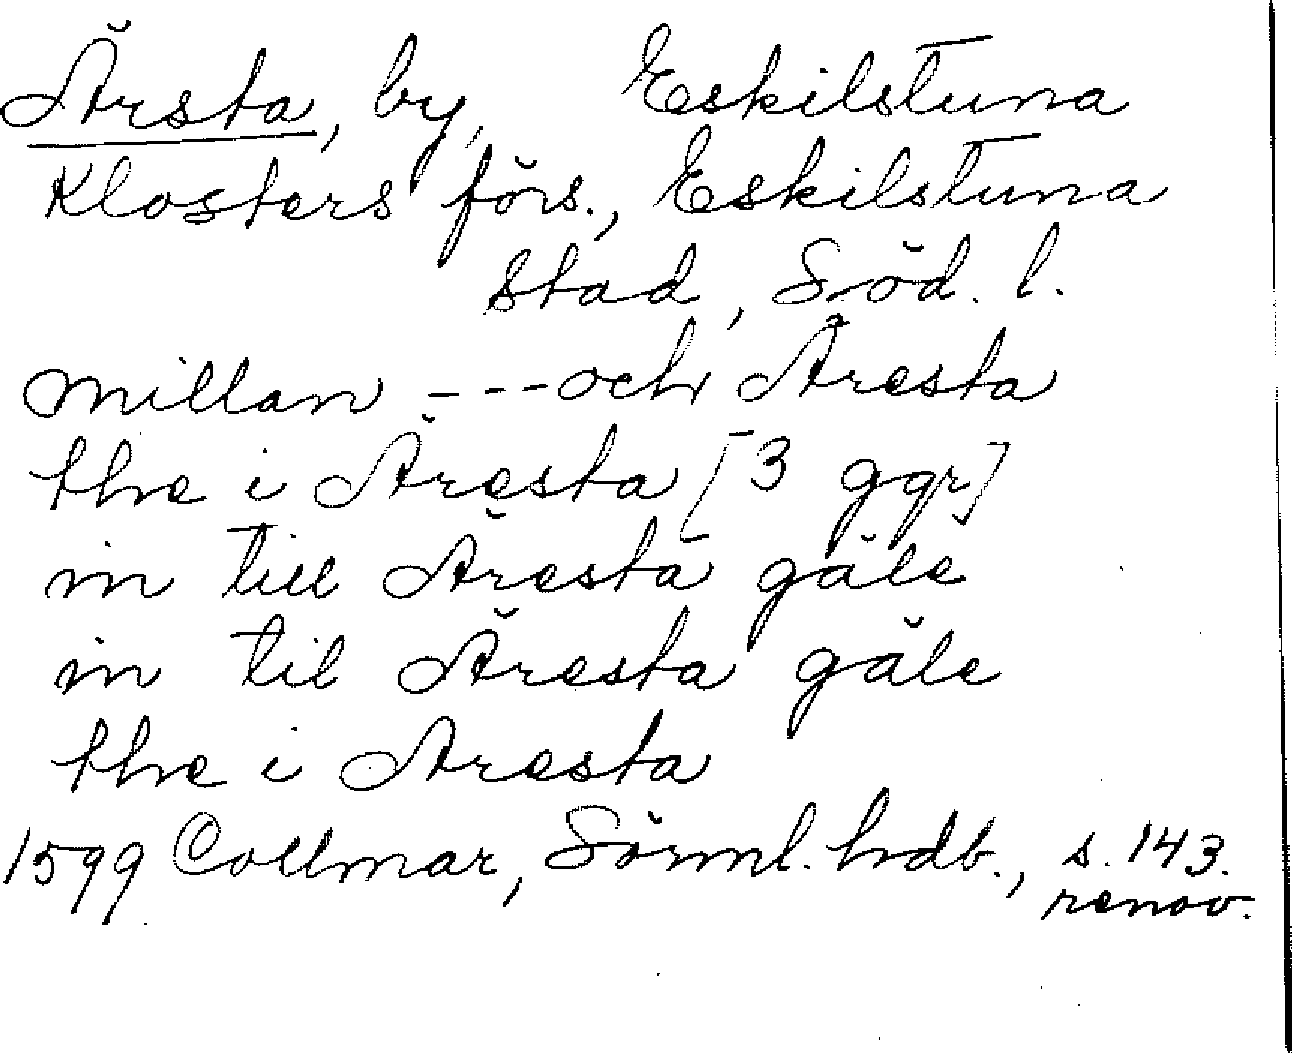 Ärsta, by, Eskilstuna
Klosters förs., Eskilstuna
stad, Söd. l.
millan --- och Åresta
the i Äresta [3 ggr]
in till Äresta gäle
in til Äresta gäle
the i Aresta
1599 Collmar, Sörml. hdb., s. 143.
renov.